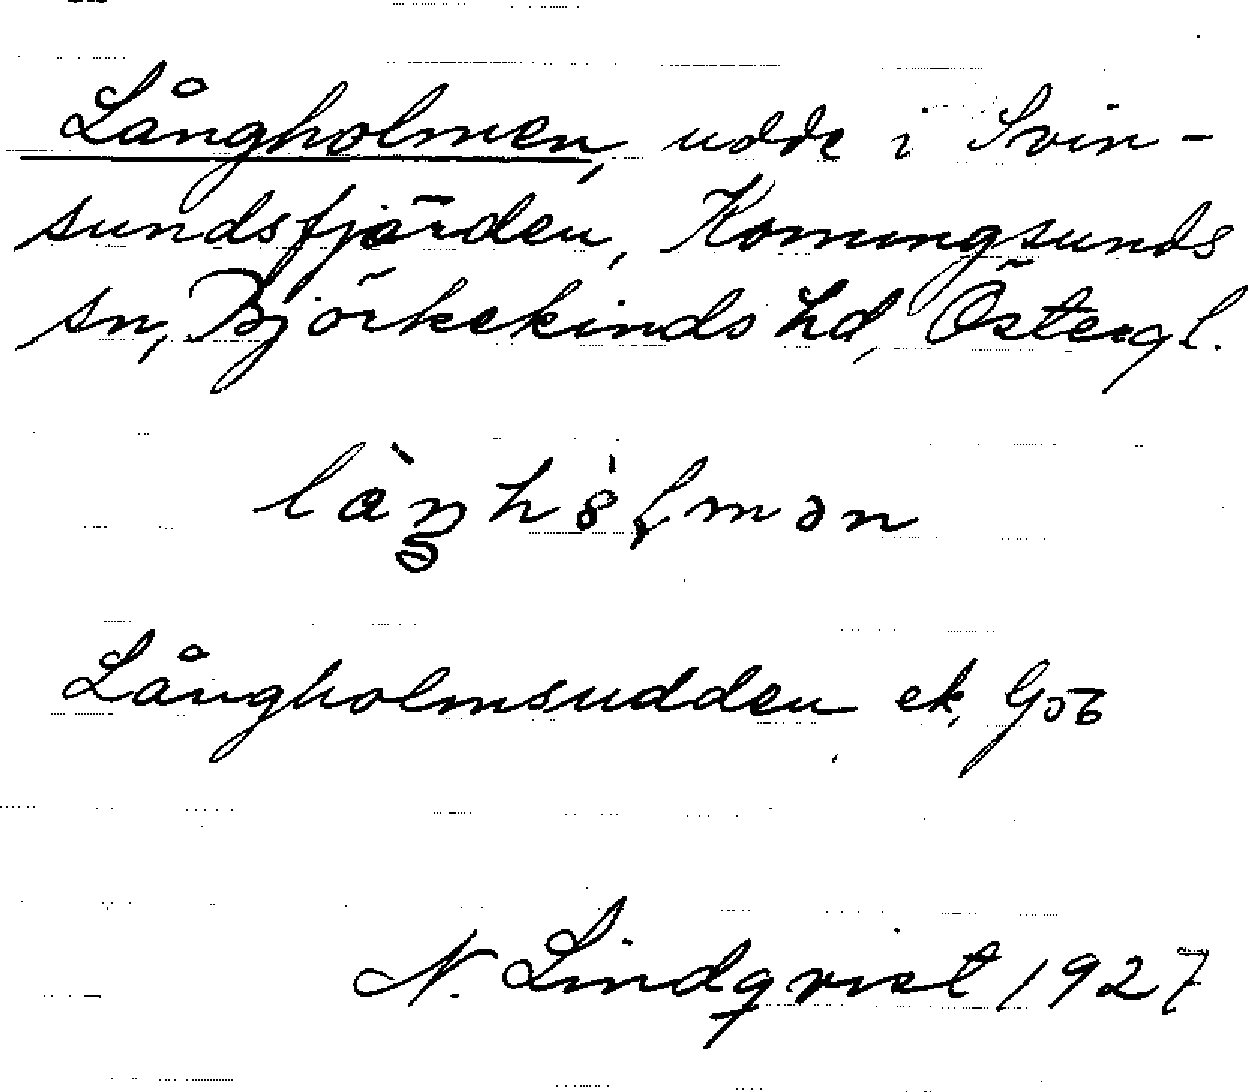 Långholmen, udde i Svin-
sundsfjärden, Konungsunds
sn, Björkekinds hd, Östergl.
Långholmsudden ek. G 56
N. Lindqvist 1927